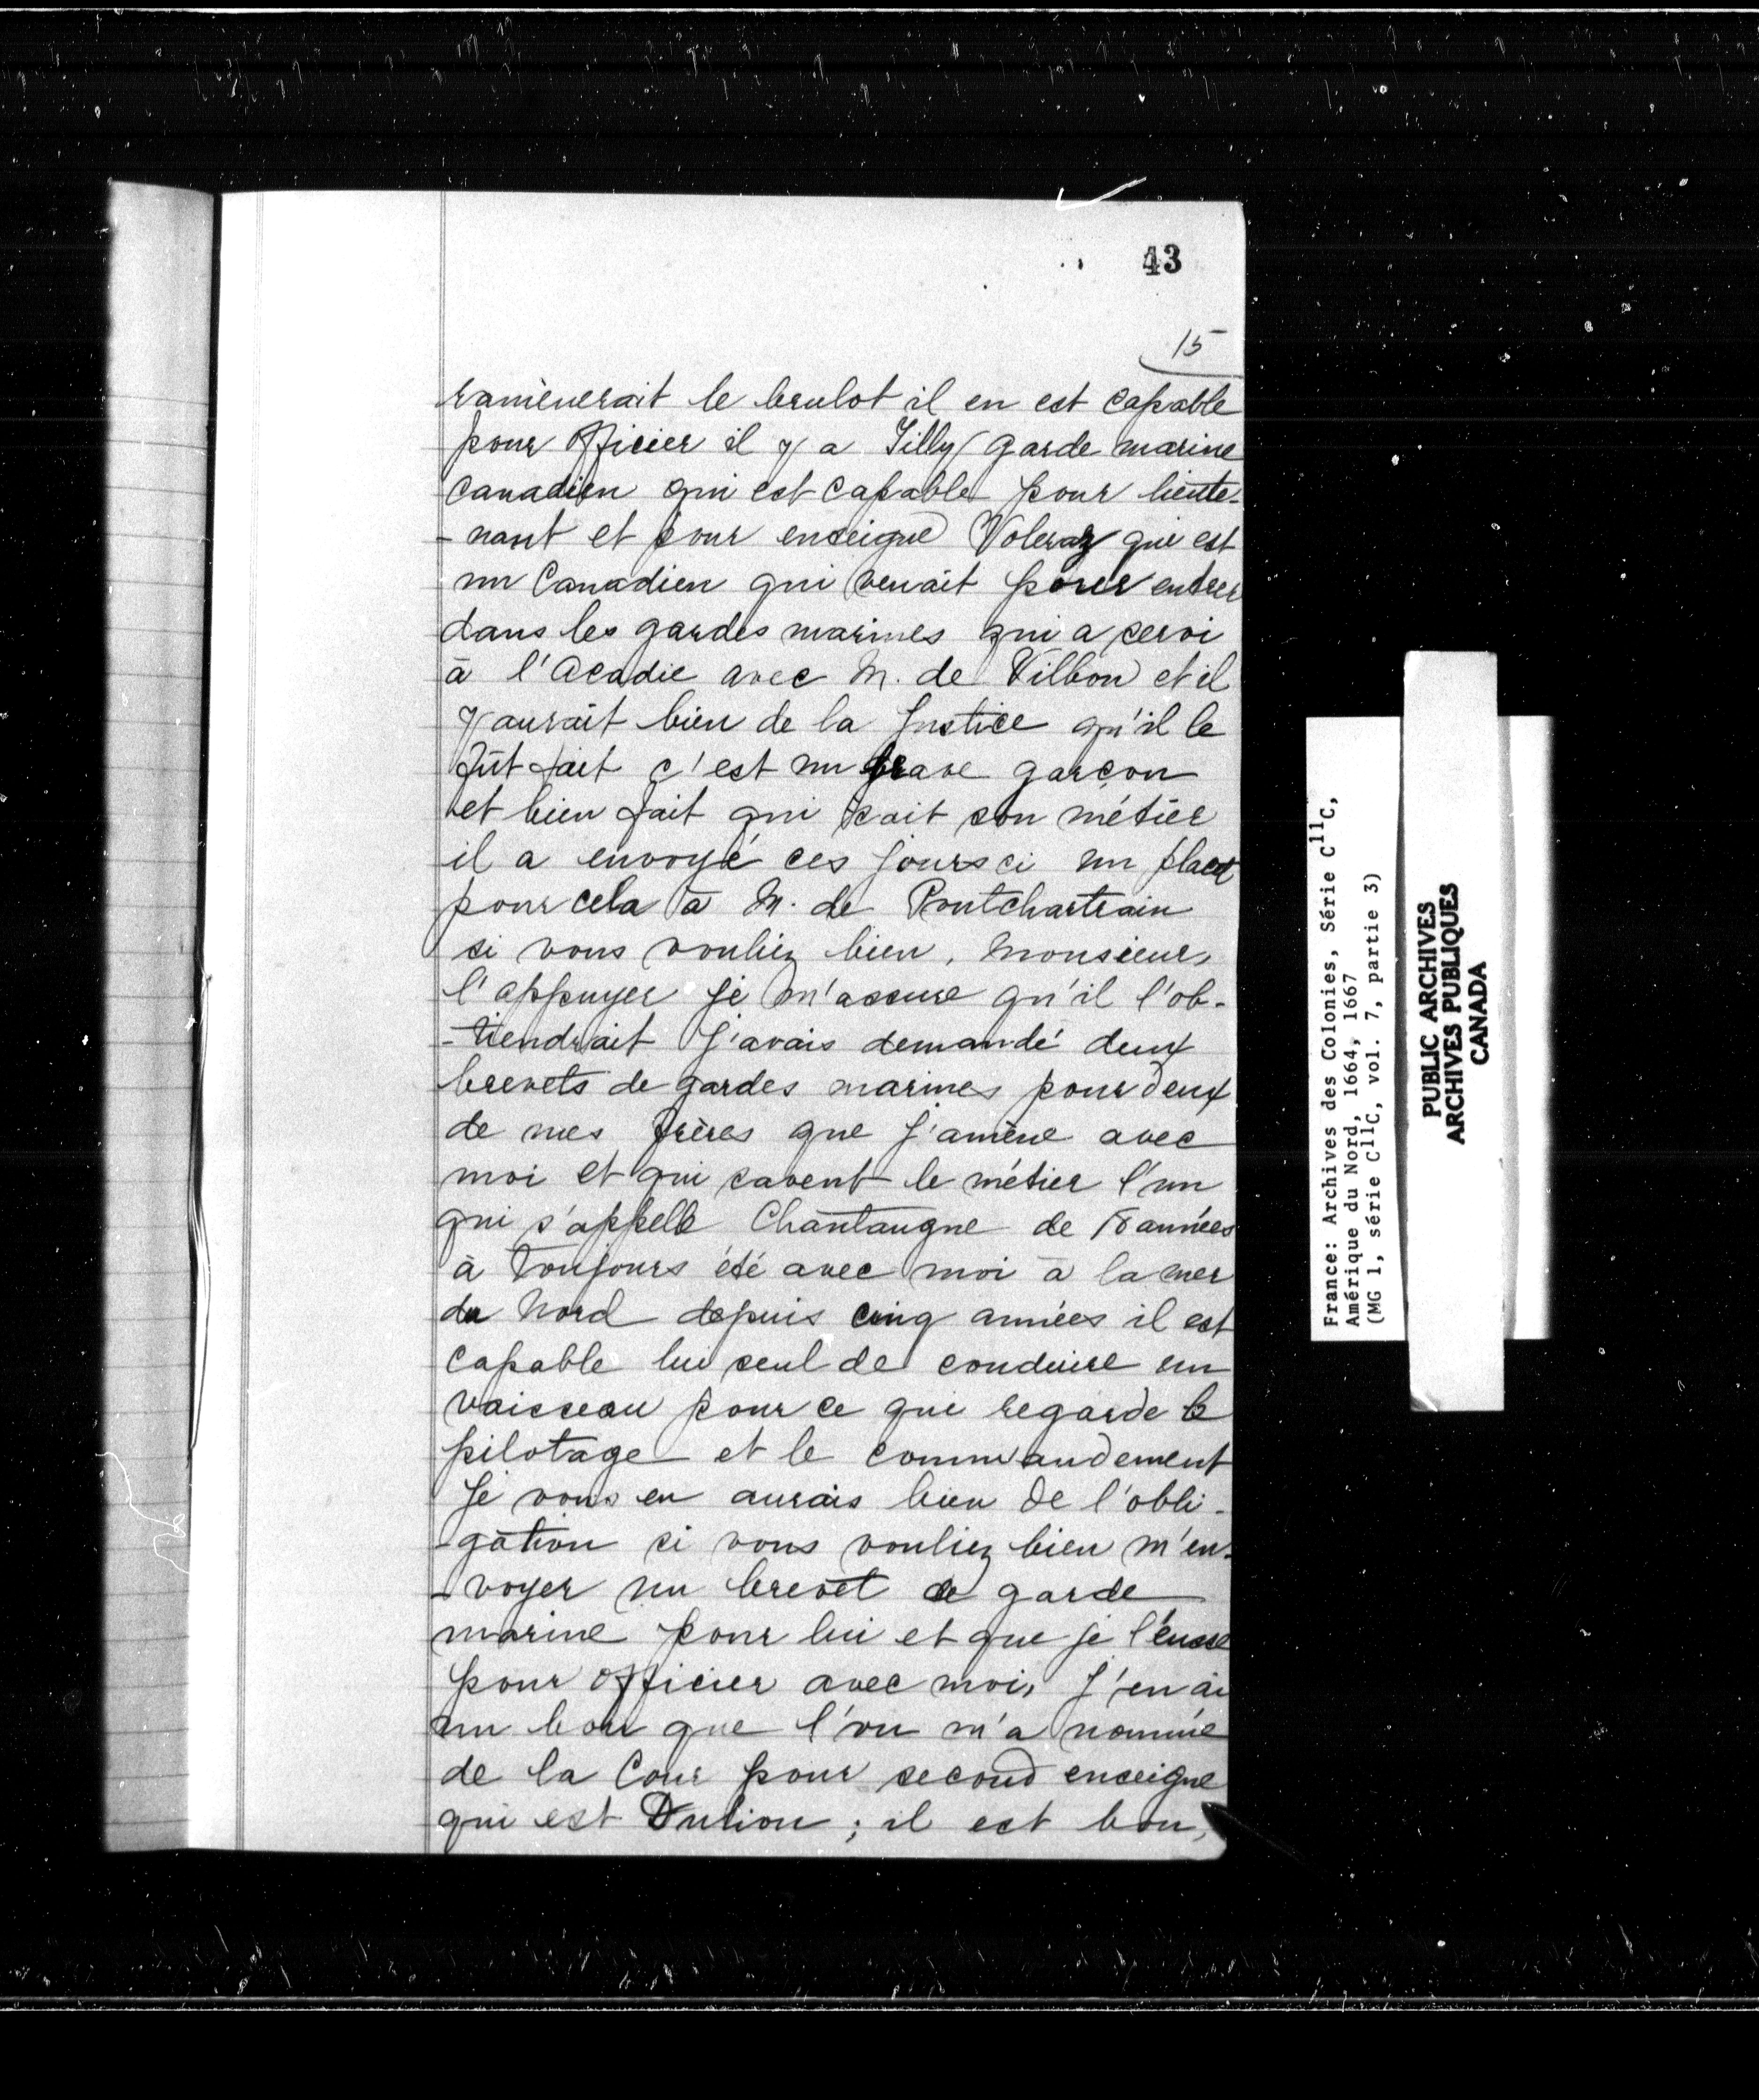 43
15
ramènerait le brulot il en est capable
pour officier il y a Tilly garde marine
canadien qui est capable pour lieute-
-nant et pour enseigne Volezay qui est
un Canadien qui venait pour entrer
dans les gardes marines qui a servi
à l'Acadie avec M. de Vilbon et il
y aurait bien de la Justice qu'il le
fût fait c'est un brave garçon
et bien fait qui sait son métier
il a envoyé ces jours ci un placet
pour cela à M. de Pontchartrain
si vous vouliez bien, Monsieur,
l'appuyer je m'assure qu'il l'ob-
-tiendrait j'avais demandé deux
brevets de gardes marines pour deux
de mes frères que j'amène avec
moi et qui savent le métier l'un
qui s'appelle Chantaugne de 18 années
à toujours été avec moi à la mer
du Nord depuis cinq années il est
capable lui seul de conduire un
vaisseau pour ce qui regarde le
pilotage et le commandement
Je vous en aurais bien de l'obli-
-gation si vous vouliez bien m'en-
-voyer un brevet de garde
marine pour lui et que je l'eusse
pour officier avec moi, J'en ai
un bon que l'on m'a nommé
de la Cour pour second enseigne
qui est ; il est bon,
France: Archives des Colonies, Série C11C,
Amérique du Nord, 1664, 1667
(MG 1, série C11C, vol. 7, partie 3)
PUBLIC ARCHIVES
ARCHIVES PUBLIQUES
CANADA